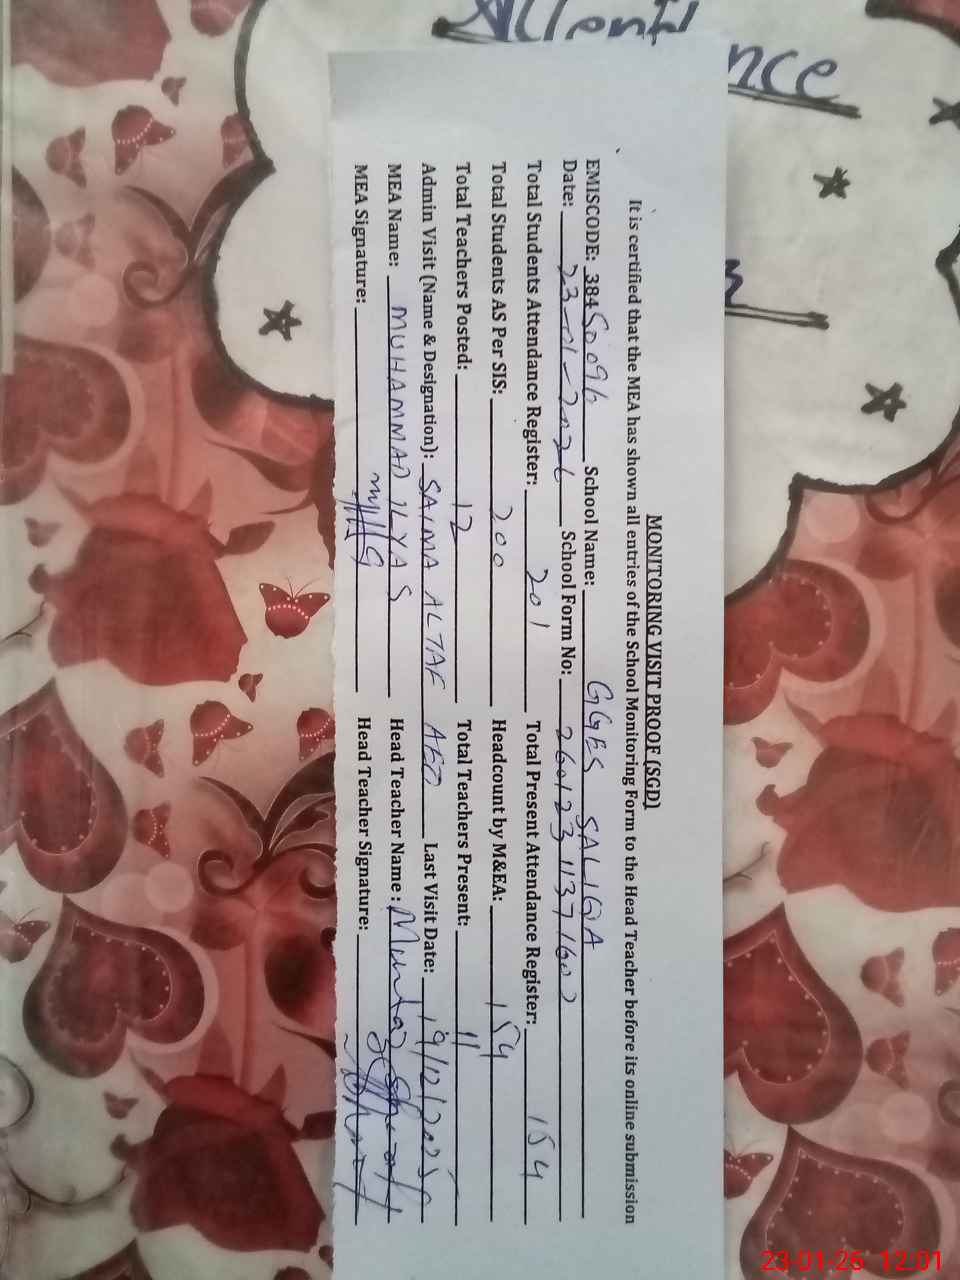 Attendance
MONITORING VISIT PROOF (SGD)
It is certified that the MEA has shown all entries of the School Monitoring Form to the Head Teacher before its online submission
EMISCODE: 38450096 School Name: GGES SALIQA
Date: 23-01-2026 School Form No: 260123 1137 1602
Total Students Attendance Register: 201 Total Present Attendance Register: 154
Total Students AS Per SIS: 200 Headcount by M&EA: 154
Total Teachers Posted: 12 Total Teachers Present: 11
Admin Visit (Name & Designation): SAIMA ALTAF AEO Last Visit Date: 19/12/2025
MEA Name: MUHAMMAD ILYAS Head Teacher Name: Mumtaz
MEA Signature: Head Teacher Signature:
23-01-26 12:01